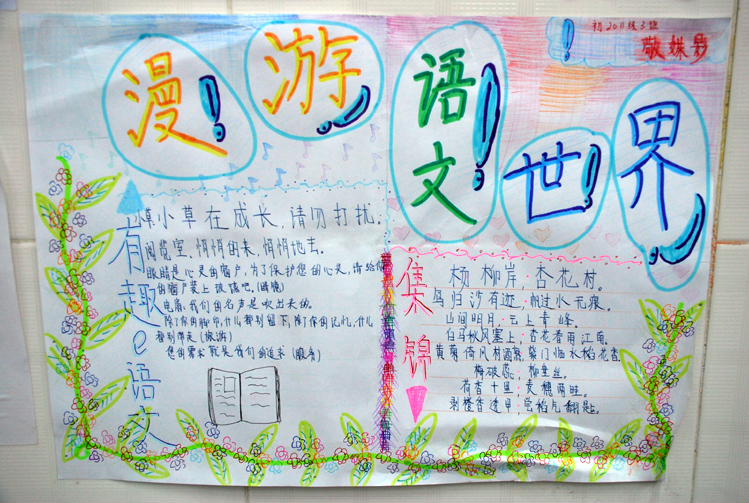 初2011级3班
漫游语文世界
有趣e语文
小草在成长,请勿打扰。
阅览室,悄悄的来,悄悄地去。
眼睛是心灵的窗户,为了保护您的心灵,请给你
的窗户装上玻璃吧。(眼镜)
电扇,我们的名声是吹出来的。
除了你的脚印,什么都别留下,除了你的记忆,什么
都别带走(旅游)
您的需求就是我们的追求(服务)
集锦
杨柳岸,杏花村。
鸟归沙有迹,帆过水无痕。
山间明月,云上青峰。
白马秋风塞上,杏花春雨江南
黄菊倚风村酒熟,柴门临水稻花香
梅破蕊,柳垂丝。
荷香十里,麦穗两岐。
剥橙香透甲,尝稻